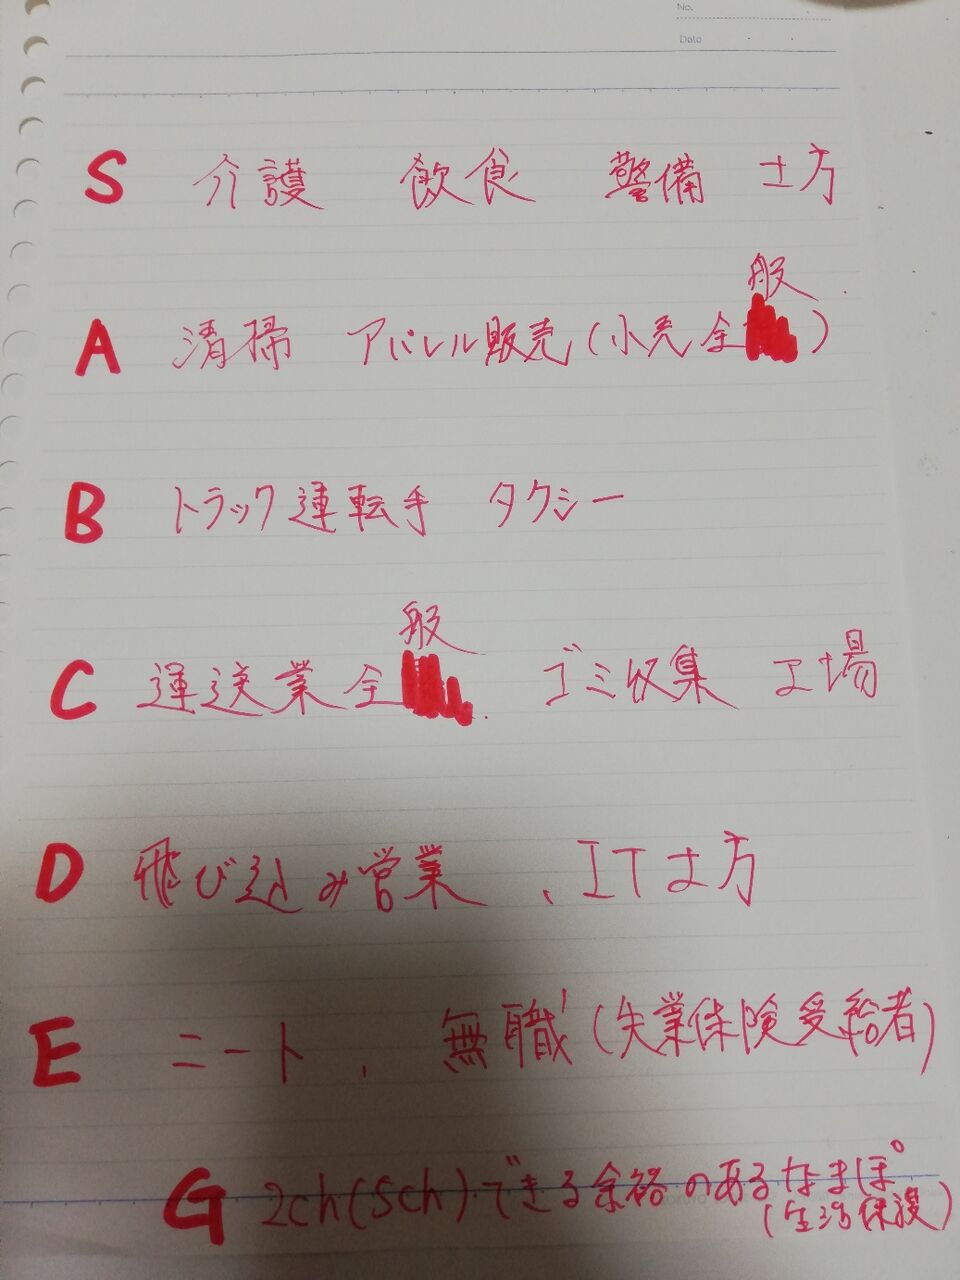 No.
Date
S 介護 飲食 警備 土方
A 清掃 アパレル販売(小売全般)
B トラック運転手 タクシー
C 運送業全般. ゴミ収集 工場
D 飛び込み営業、IT土方
E ニート、無職(失業保険受給者)
G 2ch(5ch)できる余裕のあるなまぽ
(生活保護)